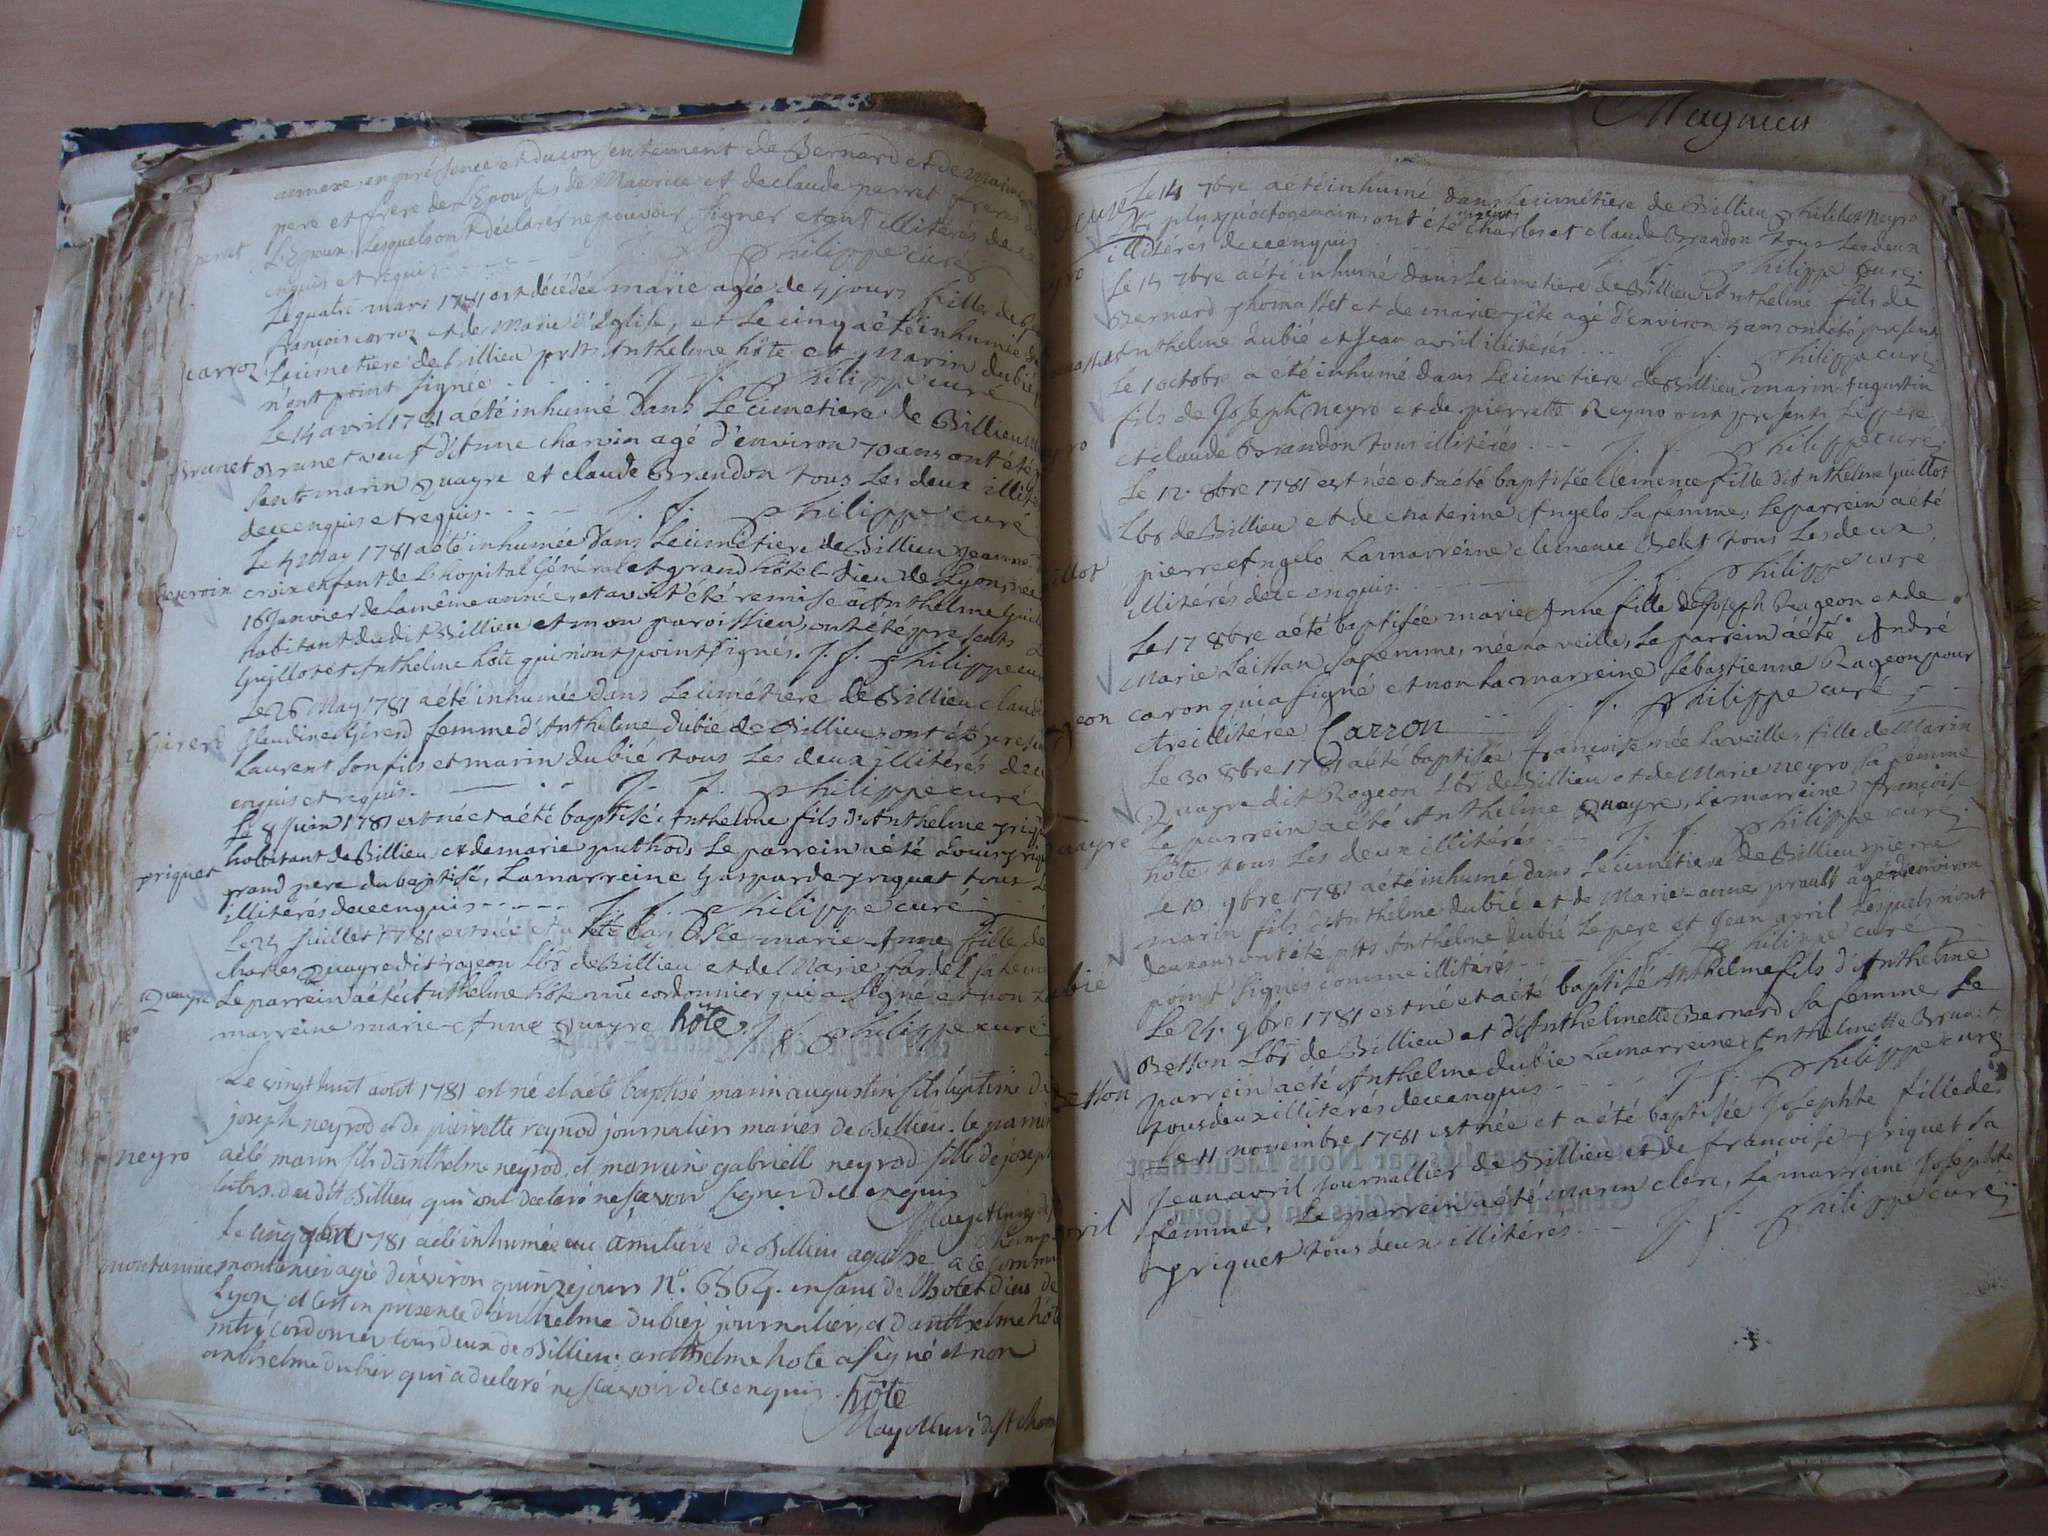 annexe, en présence et du consentement de Bernard et de Marin
pere et frère de L'Epouse, de Maurice et de claude perret freres
perret
L'Epoux, Lesquels ont déclarer ne pouvoir signer etant illitérés de ce
enquis et requis J. J. philippe curé
Le quatre mars 1781 est décédée marie agée de 4 jours fille de
françois carroz et de Marie d'Eglise, et Le cinq a été inhumée
carroz
Le cimetiere de billieu pnts Anthelme hôte et Marin dubié
n'ont point signée J. J. philippe curé
Le 14 avril 1781 a été inhumé dans Le cimetiere de Billieu
Brunet
Brunet veuf d'Etienne charvin agé d'environ 70 ans ont été
sents marin quayre et claude Brandon tous Les deux illité
de ce enquis et requis J. J. philippe curé
Le 4 May 1781 a été inhumée dans Le cimetiere de Billieu jeanne
Lacroix
croix enfant de L'hopital Général et grand hôtel-dieu de Lyon, née
16 Janvier de La même année, et avoit été remise à Anthelme Guil
habitant dudit Billieu et mon paroissien, ont été presents
Guillot et Anthelme hôte qui n'ont point signés. J. J. philippe cur
Le 26 May 1781 a été inhumée dans Le cimétiere de Billieu claudi
Girerd
Glaudine Girerd femme d'Anthelme dubié de Billieu, ont été presen
Laurent son fils et marin dubié tous Les deux illitérés de ce
enquis et requis. J. J. philippe curé
Le 8 Juin 1781 est né et a été baptisé Anthelme fils d'Anthelme priqu
habitant de Billieu et de marie puthod, Le parrein a été Louis priqu
priquet
grand pere du baptisé, La marreine Gasparde priquet, tous
illitérés de ce enquis J. J. philippe curé
Le 24 Juillet 1781 est née et a été baptisée marie-Anne fille de
charles quayre dit rageon Lbr de Billieu et de Marie fardel sa femm
quayre
Le parrein a été Anthelme hôte mtre cordonnier qui a signé et non La
marreine marie-Anne quayre hôte J. J. philippe curé
Le vingt huit aout 1781 est né et a été baptisé marin augustin fils légitime de
joseph neyrod et de pierrette reynod journaliers mariés de Billieu. le parrein
neyro
a été marin fils d'anthelme neyrod, et marraine gabrielle neyrod fille de joseph
dudit Billieu qui ont déclaré ne scavoir signer de ce enquis
Mayet curé de st champ
Le cinq 7bre 1781 a été inhumée au cimetiere de Billieu agathe
montanier
montanier agée d'environ quinze jours N°. 6564. enfant de l'hotel dieu de
Lyon; et c'est en présence d'anthelme dubiez journalier, et d'anthelme hôte
mtre cordonier tous deux de Billieu; anthelme hote a signé et non
anthelme dubier qui a déclaré ne scavoir de ce enquis. hôte
Mayet curé de st cham
Magnieu
Le 14 7bre a été inhumé dans Le cimétiere de Billieu philibert Neyro
Lbr plus qu'octogenaire ont été presents charles et claude Brandon tous Les deux
illitérés de ce enquis J. J. philippe curé
Le 14 7bre a été inhumé dans Le cimetiere de Billieu Anthelme fils de
Bernard thomasset et de marie hôte agé d'environ 4 ans ont été presents
Anthelme dubié et Jean avril illitérés J. J. philippe curé
Le 1 octobre a été inhumé dans Le cimetiere de Billieu marin augustin
fils de Joseph Neyro et de pierrette Reyno ont presents Le pere
et claude Brandon tous illitérés J. J. philippe curé
Le 12. 8bre 1781 est née et a été baptisée clemence fille d'Anthelme guillot
Lbr de Billieu et de catérine Angelo sa femme, Le parrein a été
illot
pierre Angelo La marreine clemence Belet tous Les deux
illitérés de ce enquis. J. J. philippe curé
Le 17 8bre a été baptisée marie Anne fille de Joseph Rageon et de
Marie Laissan sa femme, née La veille, Le parrein a été André
geon
caron qui a signé et non La marreine sebastienne Rageon pour
etre illitérée Carron J. J. philippe curé
Le 30 8bre 1781 a été baptisée françoise née La veille, fille de Marin
Quayre dit Rogeon Lbr de Billieu et de Marie neyro, sa femme
uayre
Le parrein a été Anthelme Quayre, La marreine françoise
hôte tous Les deux illitérés J. J. philippe curé
Le 10. 9bre 1781 a été inhumé dans Le cimetiere de Billieu pierre
marin fils d'Anthelme dubié et de Marie-anne prault agé d'environ
ubié
deux ans ont été pnts Anthelme dubié Le pere et Jean avril Lesquels n'ont
point signés comme illitérés J. J. philippe curé
Le 24. 9bre 1781 est né et a été baptisé Anthelme fils d'Anthelme
Besson Lbr de Billieu et d'Anthelmette Bernard sa femme, Le
sson
parrein a été Anthelme dubié La marreine Anthelmette Brunet,
tous deux illiterés de ce enquis J. J. philippe curé
Le 11 novembre 1781 est née et a été baptisée Josephte fille de
Jean avril Journallier de Billieu et de françoise priquet sa
vril
femme. Le parrein a été Marin clerc, La marreine Josephte
priquet tous deux illitérés. J. J. philippe curé